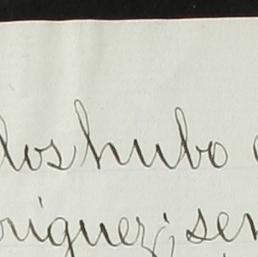 los hubo
riguez; ser